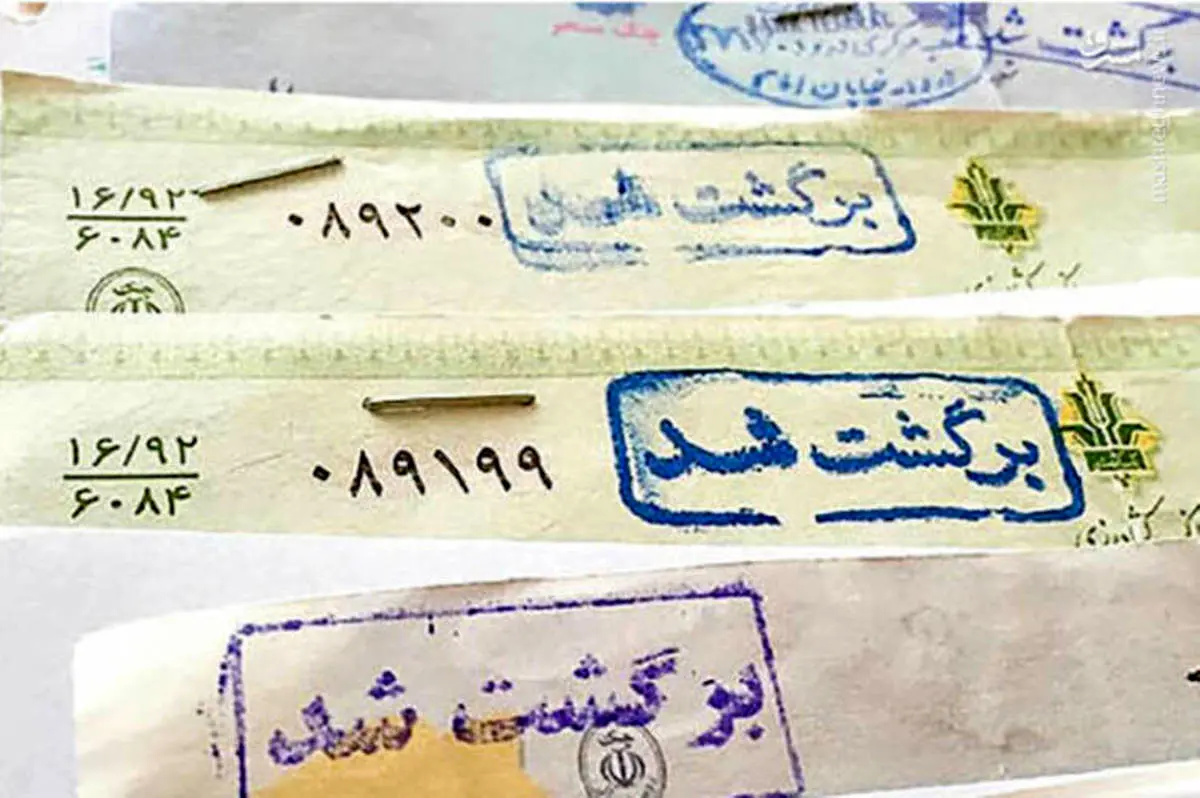 برگشت شد
خیابان امام
برگشت شد
۰۸۹۲۰۰
۱۶/۹۲
۶۰۸۴
برگشت شد
۰۸۹۱۹۹
۱۶/۹۲
۶۰۸۴
کشاورزی
برگشت شد
چک
mashreghnews.ir